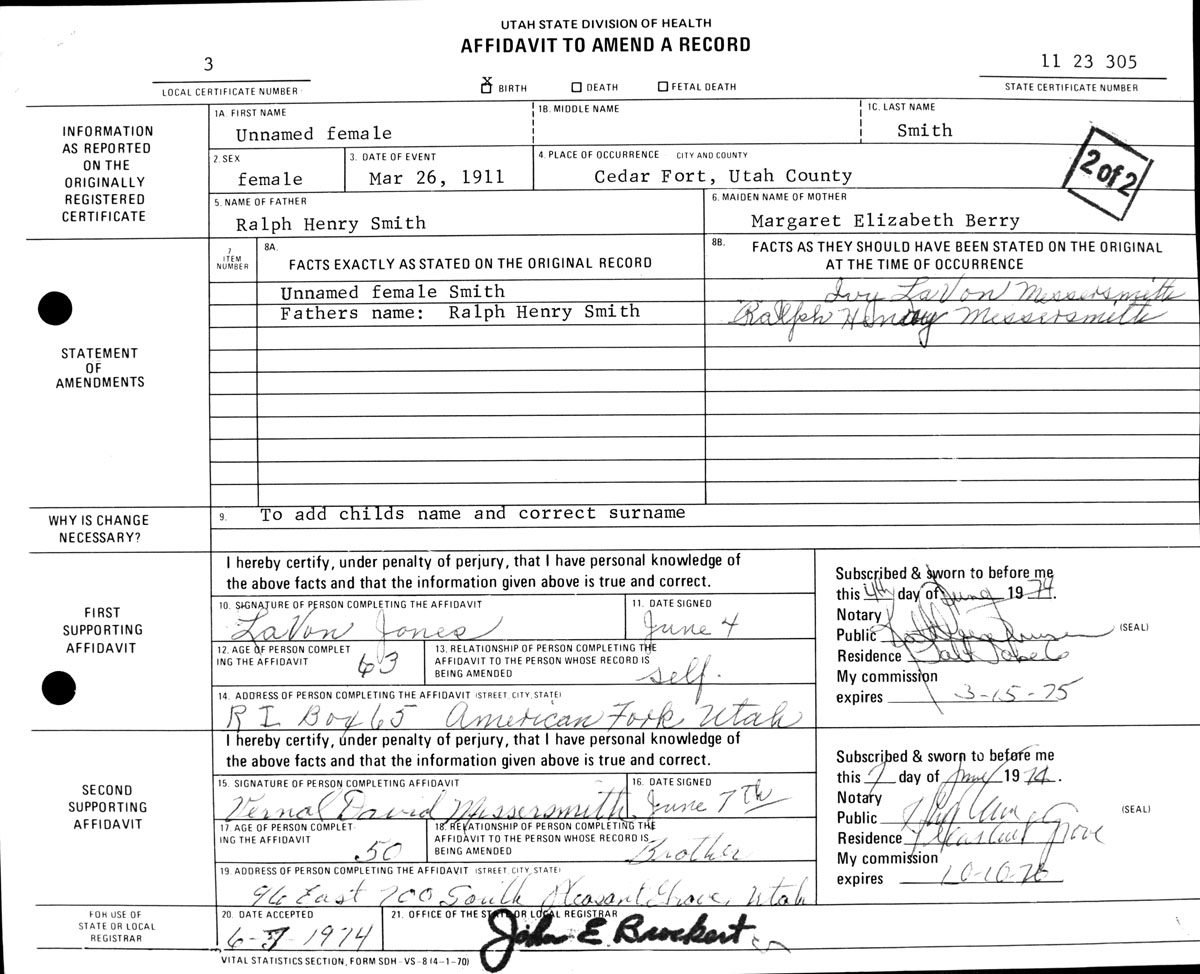 UTAH STATE DIVISION OF HEALTH
AFFIDAVIT TO AMEND A RECORD
3
LOCAL CERTIFICATE NUMBER
X BIRTH DEATH FETAL DEATH
11 23 305
STATE CERTIFICATE NUMBER
INFORMATION
AS REPORTED
ON THE
ORIGINALLY
REGISTERED
CERTIFICATE
1A. FIRST NAME 1B. MIDDLE NAME 1C. LAST NAME
Unnamed female Smith
2. SEX 3. DATE OF EVENT 4. PLACE OF OCCURRENCE CITY AND COUNTY
female Mar 26, 1911 Cedar Fort, Utah County
2 of 2
5. NAME OF FATHER 6. MAIDEN NAME OF MOTHER
Ralph Henry Smith Margaret Elizabeth Berry
STATEMENT
OF
AMENDMENTS
7 ITEM NUMBER
8A.
FACTS EXACTLY AS STATED ON THE ORIGINAL RECORD
8B. FACTS AS THEY SHOULD HAVE BEEN STATED ON THE ORIGINAL
AT THE TIME OF OCCURRENCE
Unnamed female Smith Ivy LaVon Messersmith
Fathers name: Ralph Henry Smith Ralph Henry Messersmith
WHY IS CHANGE
NECESSARY?
9. To add childs name and correct surname
FIRST
SUPPORTING
AFFIDAVIT
I hereby certify, under penalty of perjury, that I have personal knowledge of
the above facts and that the information given above is true and correct.
10. SIGNATURE OF PERSON COMPLETING THE AFFIDAVIT 11. DATE SIGNED
LaVon Jones June 4
12. AGE OF PERSON COMPLET
ING THE AFFIDAVIT 63
13. RELATIONSHIP OF PERSON COMPLETING THE
AFFIDAVIT TO THE PERSON WHOSE RECORD IS
BEING AMENDED self.
14. ADDRESS OF PERSON COMPLETING THE AFFIDAVIT (STREET, CITY, STATE)
R I Box 65 American Fork, Utah
Subscribed & sworn to before me
this 4th day of June 1974.
Notary
Public (SEAL)
Residence
My commission
expires 3-15-75
SECOND
SUPPORTING
AFFIDAVIT
I hereby certify, under penalty of perjury, that I have personal knowledge of
the above facts and that the information given above is true and correct.
15. SIGNATURE OF PERSON COMPLETING AFFIDAVIT 16. DATE SIGNED
Vernal David Messersmith June 7th
17. AGE OF PERSON COMPLET
ING THE AFFIDAVIT 50
18. RELATIONSHIP OF PERSON COMPLETING THE
AFFIDAVIT TO THE PERSON WHOSE RECORD IS
BEING AMENDED Brother
19. ADDRESS OF PERSON COMPLETING AFFIDAVIT (STREET, CITY, STATE)
96 East 700 South Pleasant Grove, Utah
Subscribed & sworn to before me
this 7 day of June 1974.
Notary
Public (SEAL)
Residence Pleasant Grove
My commission
expires 10-10-76
FOR USE OF
STATE OR LOCAL
REGISTRAR
20. DATE ACCEPTED 21. OFFICE OF THE STATE OR LOCAL REGISTRAR
6-7-1974 John E Brockert
VITAL STATISTICS SECTION, FORM SDH-VS-8 (4-1-70)